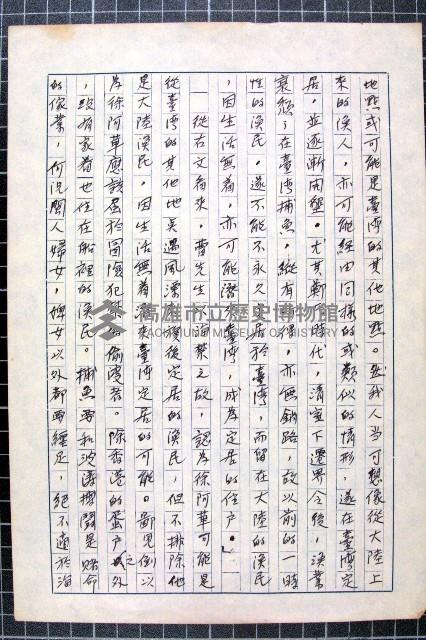 地點或可能是臺灣的其他地點。然我人當可想像從大陸上
來的漁人，亦可能經由同樣的或類似的情形，遂在臺灣定
居，並逐漸開墾。尤其鄭 時代，清室下遷界令後，漁業
衰頹；在臺灣捕魚，縱有 獲，亦無銷路，故以前的一時
性的漁民。遂不能不永久 居於臺灣，而留在大陸的漁民
，因生活無着，亦可能潛 臺灣，成為定居的住戶。」
從右文看來，曹先生 海禁之故，認為徐阿華可能是
從臺灣的其他地 遇風漂 後定居的漁民，但不排除他
是大陸漁民，因生活無着 來臺灣定居的可能。鄙見倒以
為徐阿華應該屬於冒險犯 偷渡者。除香港的蛋戶之外
，沒有家眷也住在船裡的漁民。捕魚要和波濤搏鬪是賭命
的傢業，何況閩人婦女，婢女以外都要纏足，絕不適於海
高雄市立歷史博物館
KAOHSIUNG MUSEUM OF HISTORY